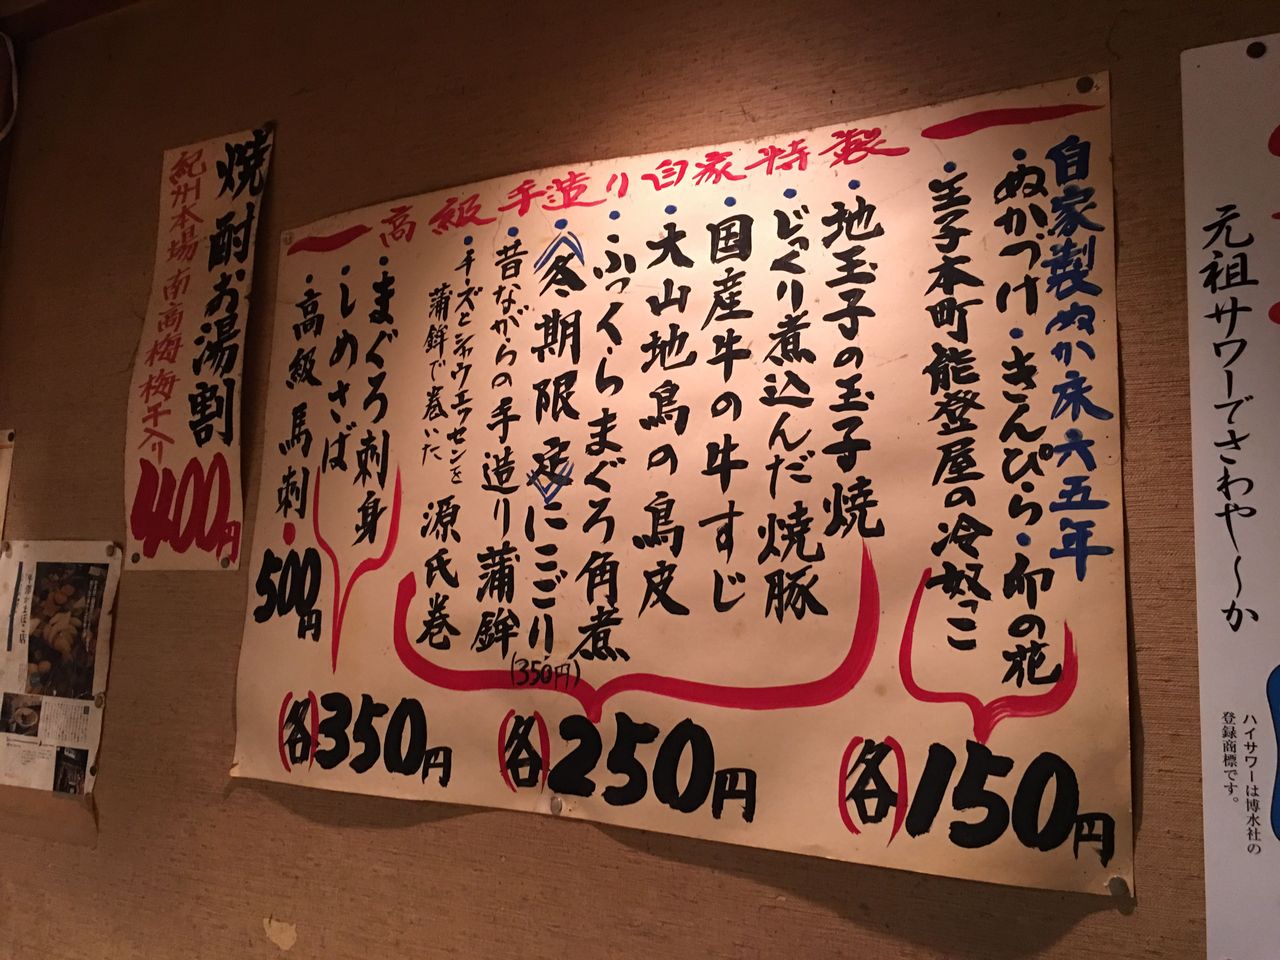 元祖サワーでさわや～か
ハイサワーは博水社の
登録商標です。
一高級手造り自家特製一
自家製ぬか床六五年
・ぬかづけ・きんぴら・卯の花
・王子本町能登屋の冷奴こ
各150円
・地玉子の玉子焼
・じっくり煮込んだ焼豚
・国産牛の牛すじ
・大山地鳥の鳥皮
・ふっくらまぐろ角煮
・冬期限定にこごり
(350円)
・昔ながらの手造り蒲鉾
・チーズとシャウエッセンを
蒲鉾で巻いた 源氏巻
(各)250円
・まぐろ刺身
・しめさば
(各)350円
・高級馬刺・500円
焼酎お湯割
紀州本場南高梅梅干入り
400円